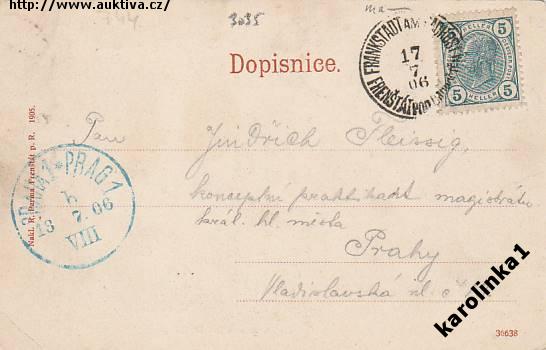 http://www.auktiva.cz/
3035
Dopisnice.
FRANKSTADT AM
17
7
06
FRENŠTÁT POD
5 5
HELLER HELLER
5 HELLER 5
Pan
Jindřich Fleissig,
konceptní praktikant magistrátu
král. hl. města
Prahy
Vladislavská ul. č.
PRAHA 1 * PRAG 1
b
18 7 06
VIII
Nakl. R. Parma Frenštát p. R. 1905.
36638
karolinka1